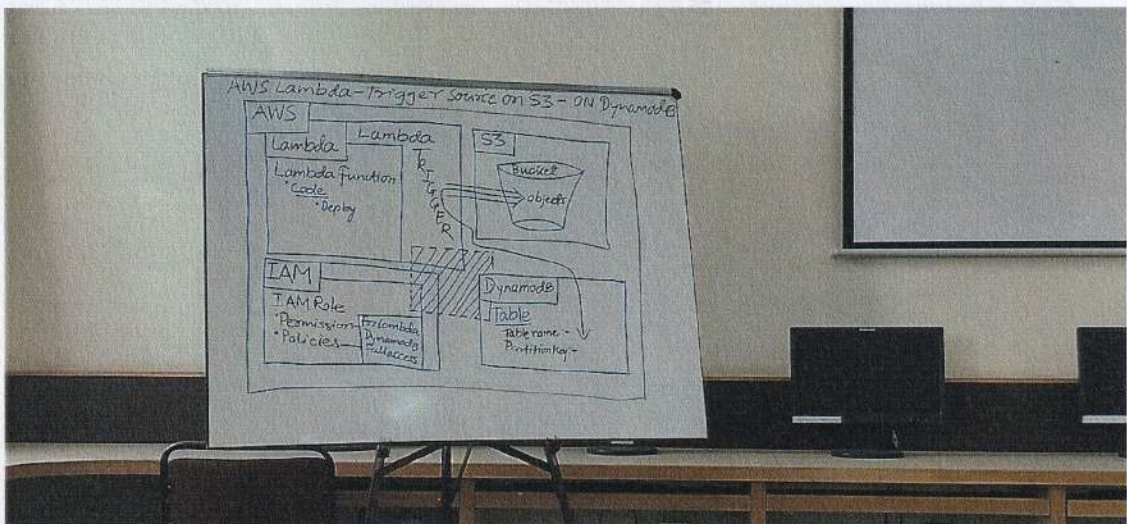 AWS Lambda-Trigger Source on S3 - ON DynamodB
AWS
Lambda
Lambda
Lambda function
• Code
• Deploy
TRIGGER
S3
Bucket
objects
IAM
IAM Role
• Permission
• Policies
For Lambda
DynamodB
Fullaccess
DynamodB
Table
Table name -
Partition Key -